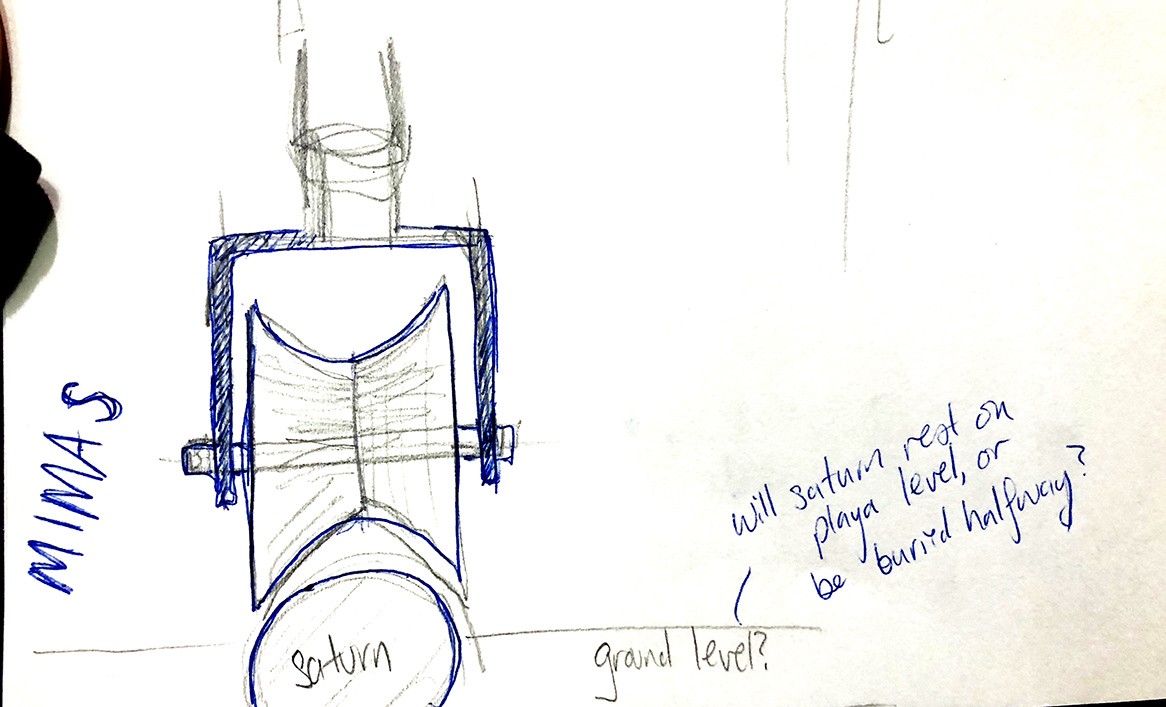 MIMAS
will saturn rest on
playa level, or
be buried halfway?
saturn
ground level?